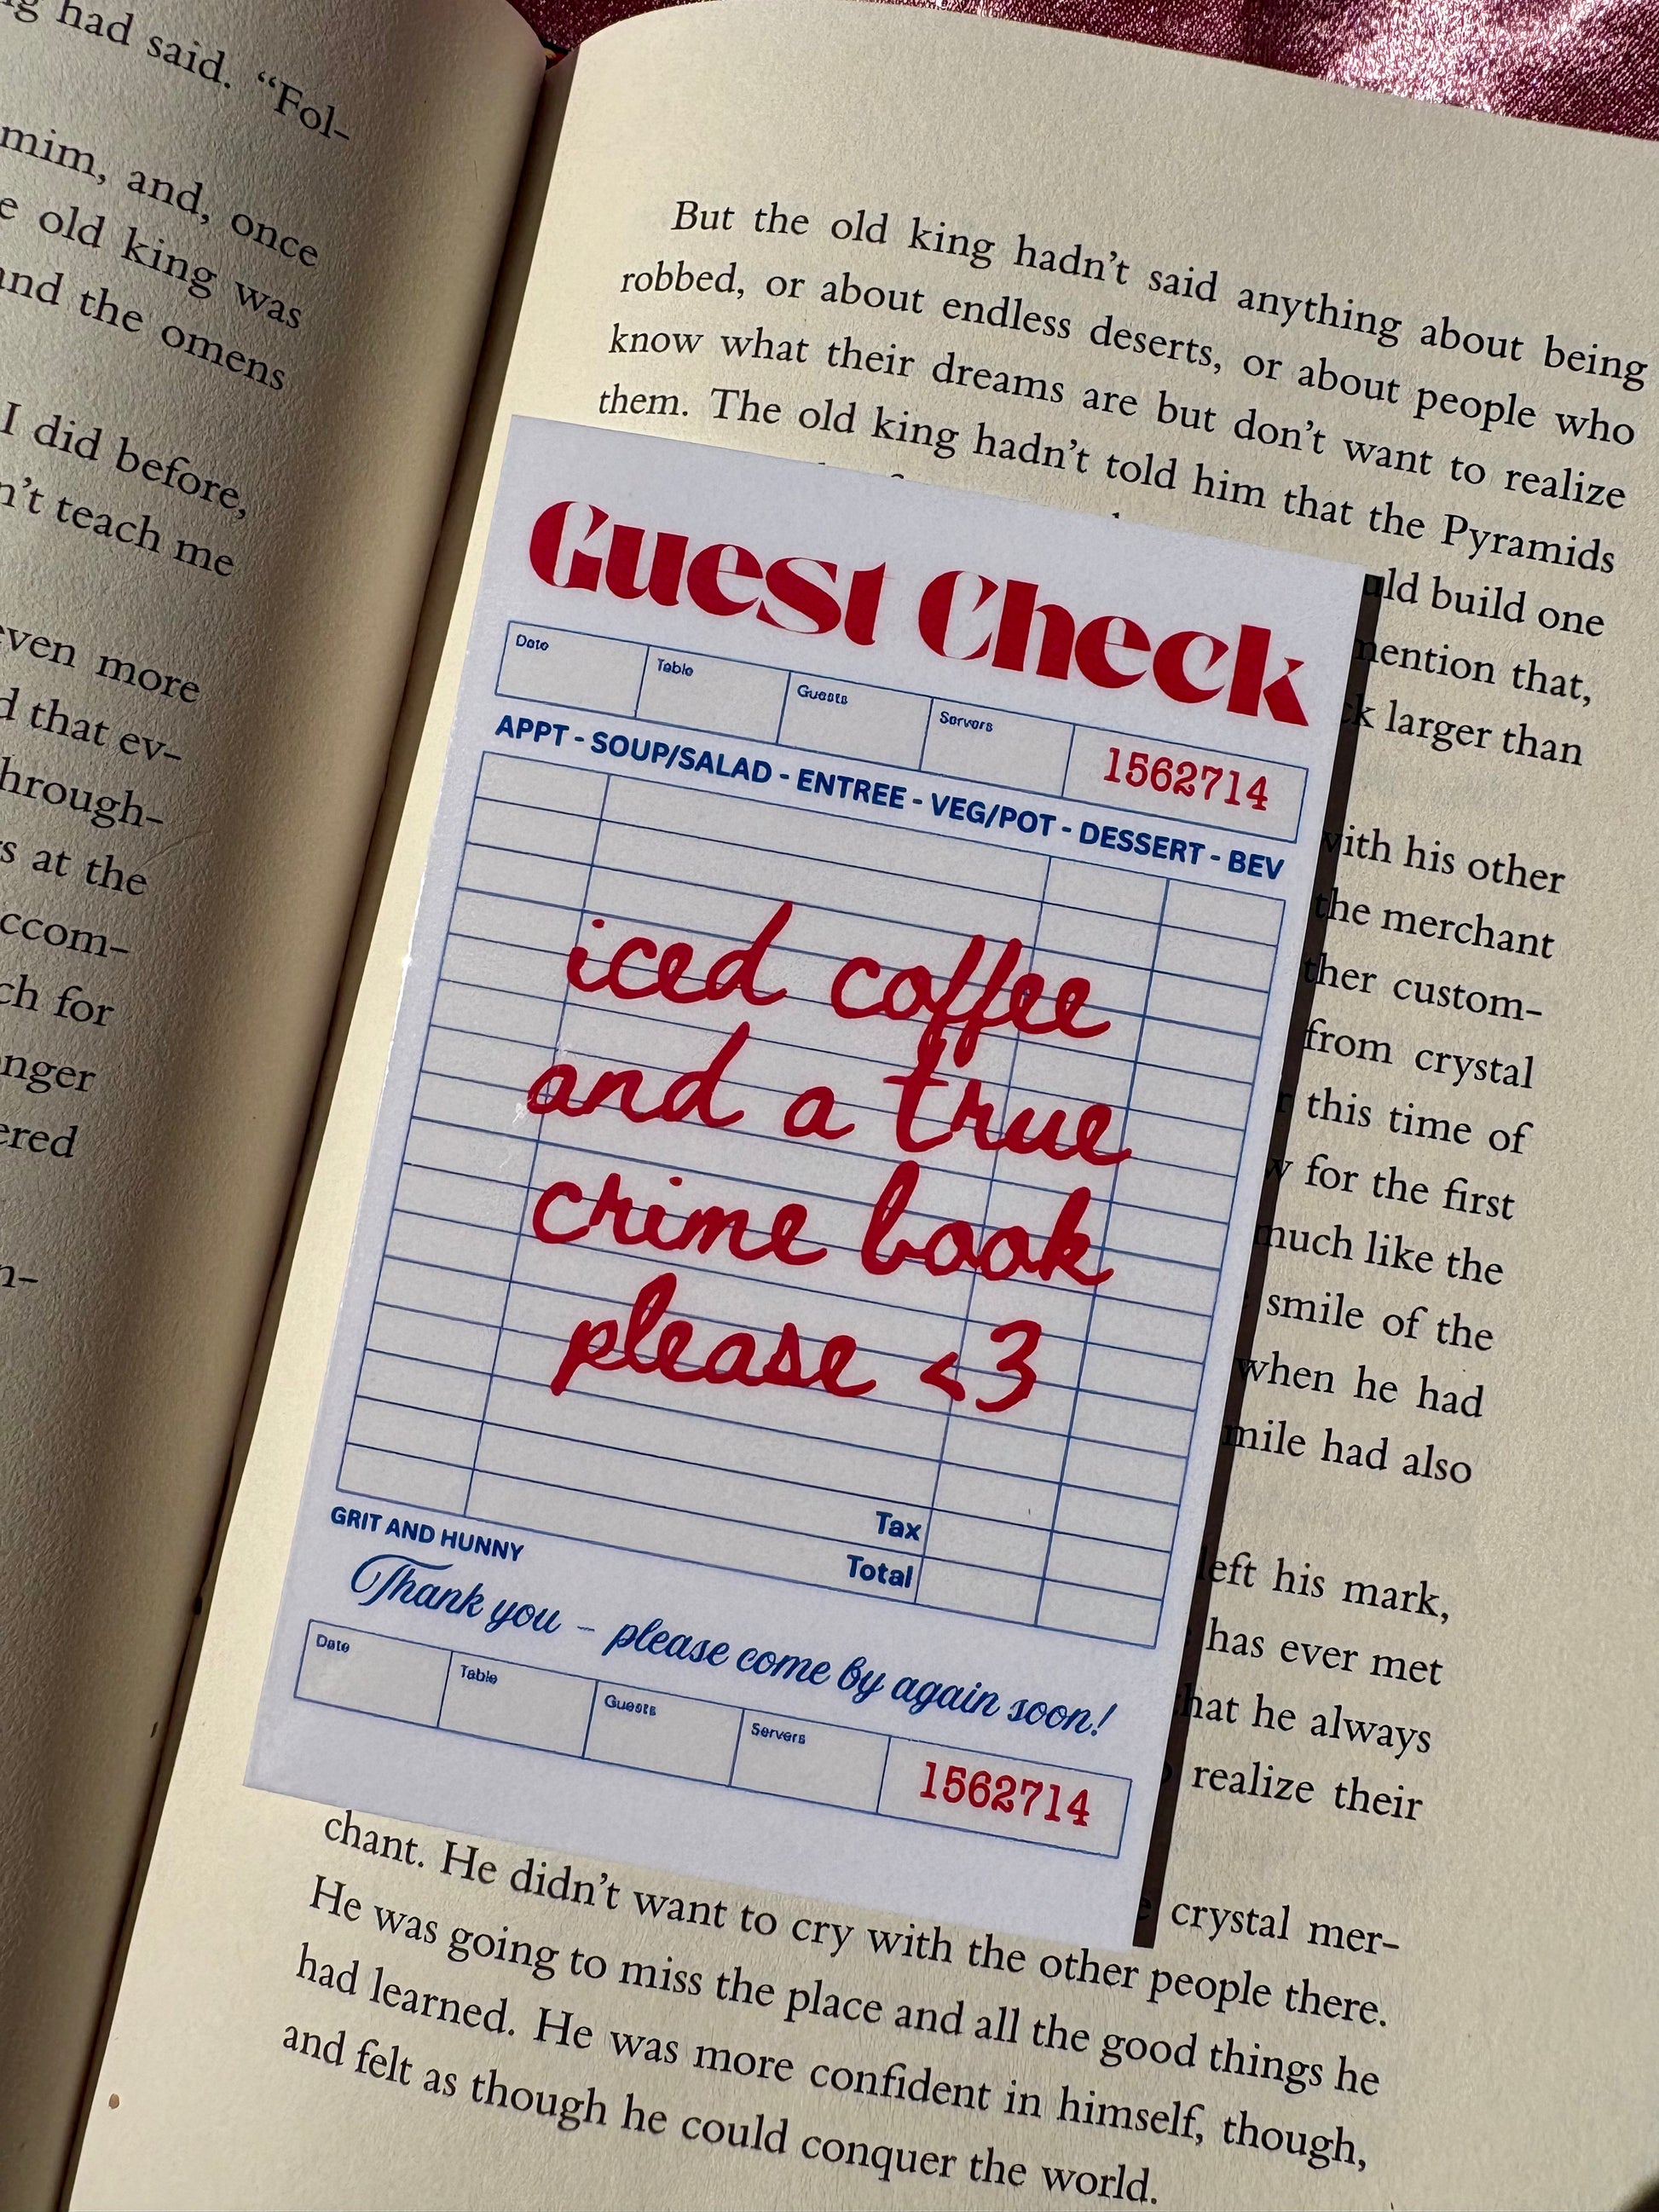 g had said. “Fol-
mim, and, once
e old king was
and the omens
I did before,
n’t teach me
even more
d that ev-
hrough-
s at the
ccom-
ch for
onger
ered
n-
But the old king hadn’t said anything about being
robbed, or about endless deserts, or about people who
know what their dreams are but don’t want to realize
them. The old king hadn’t told him that the Pyramids
uld build one
mention that,
ck larger than
with his other
the merchant
ther custom-
from crystal
this time of
w for the first
much like the
smile of the
when he had
mile had also
left his mark,
has ever met
that he always
realize their
crystal mer-
chant. He didn’t want to cry with the other people there.
He was going to miss the place and all the good things he
had learned. He was more confident in himself, though,
and felt as though he could conquer the world.
Guest Check
Date Table Guests Servers 1562714
APPT - SOUP/SALAD - ENTREE - VEG/POT - DESSERT - BEV
iced coffee
and a true
crime book
please <3
Tax
GRIT AND HUNNY Total
Thank you - please come by again soon!
Date Table Guests Servers 1562714